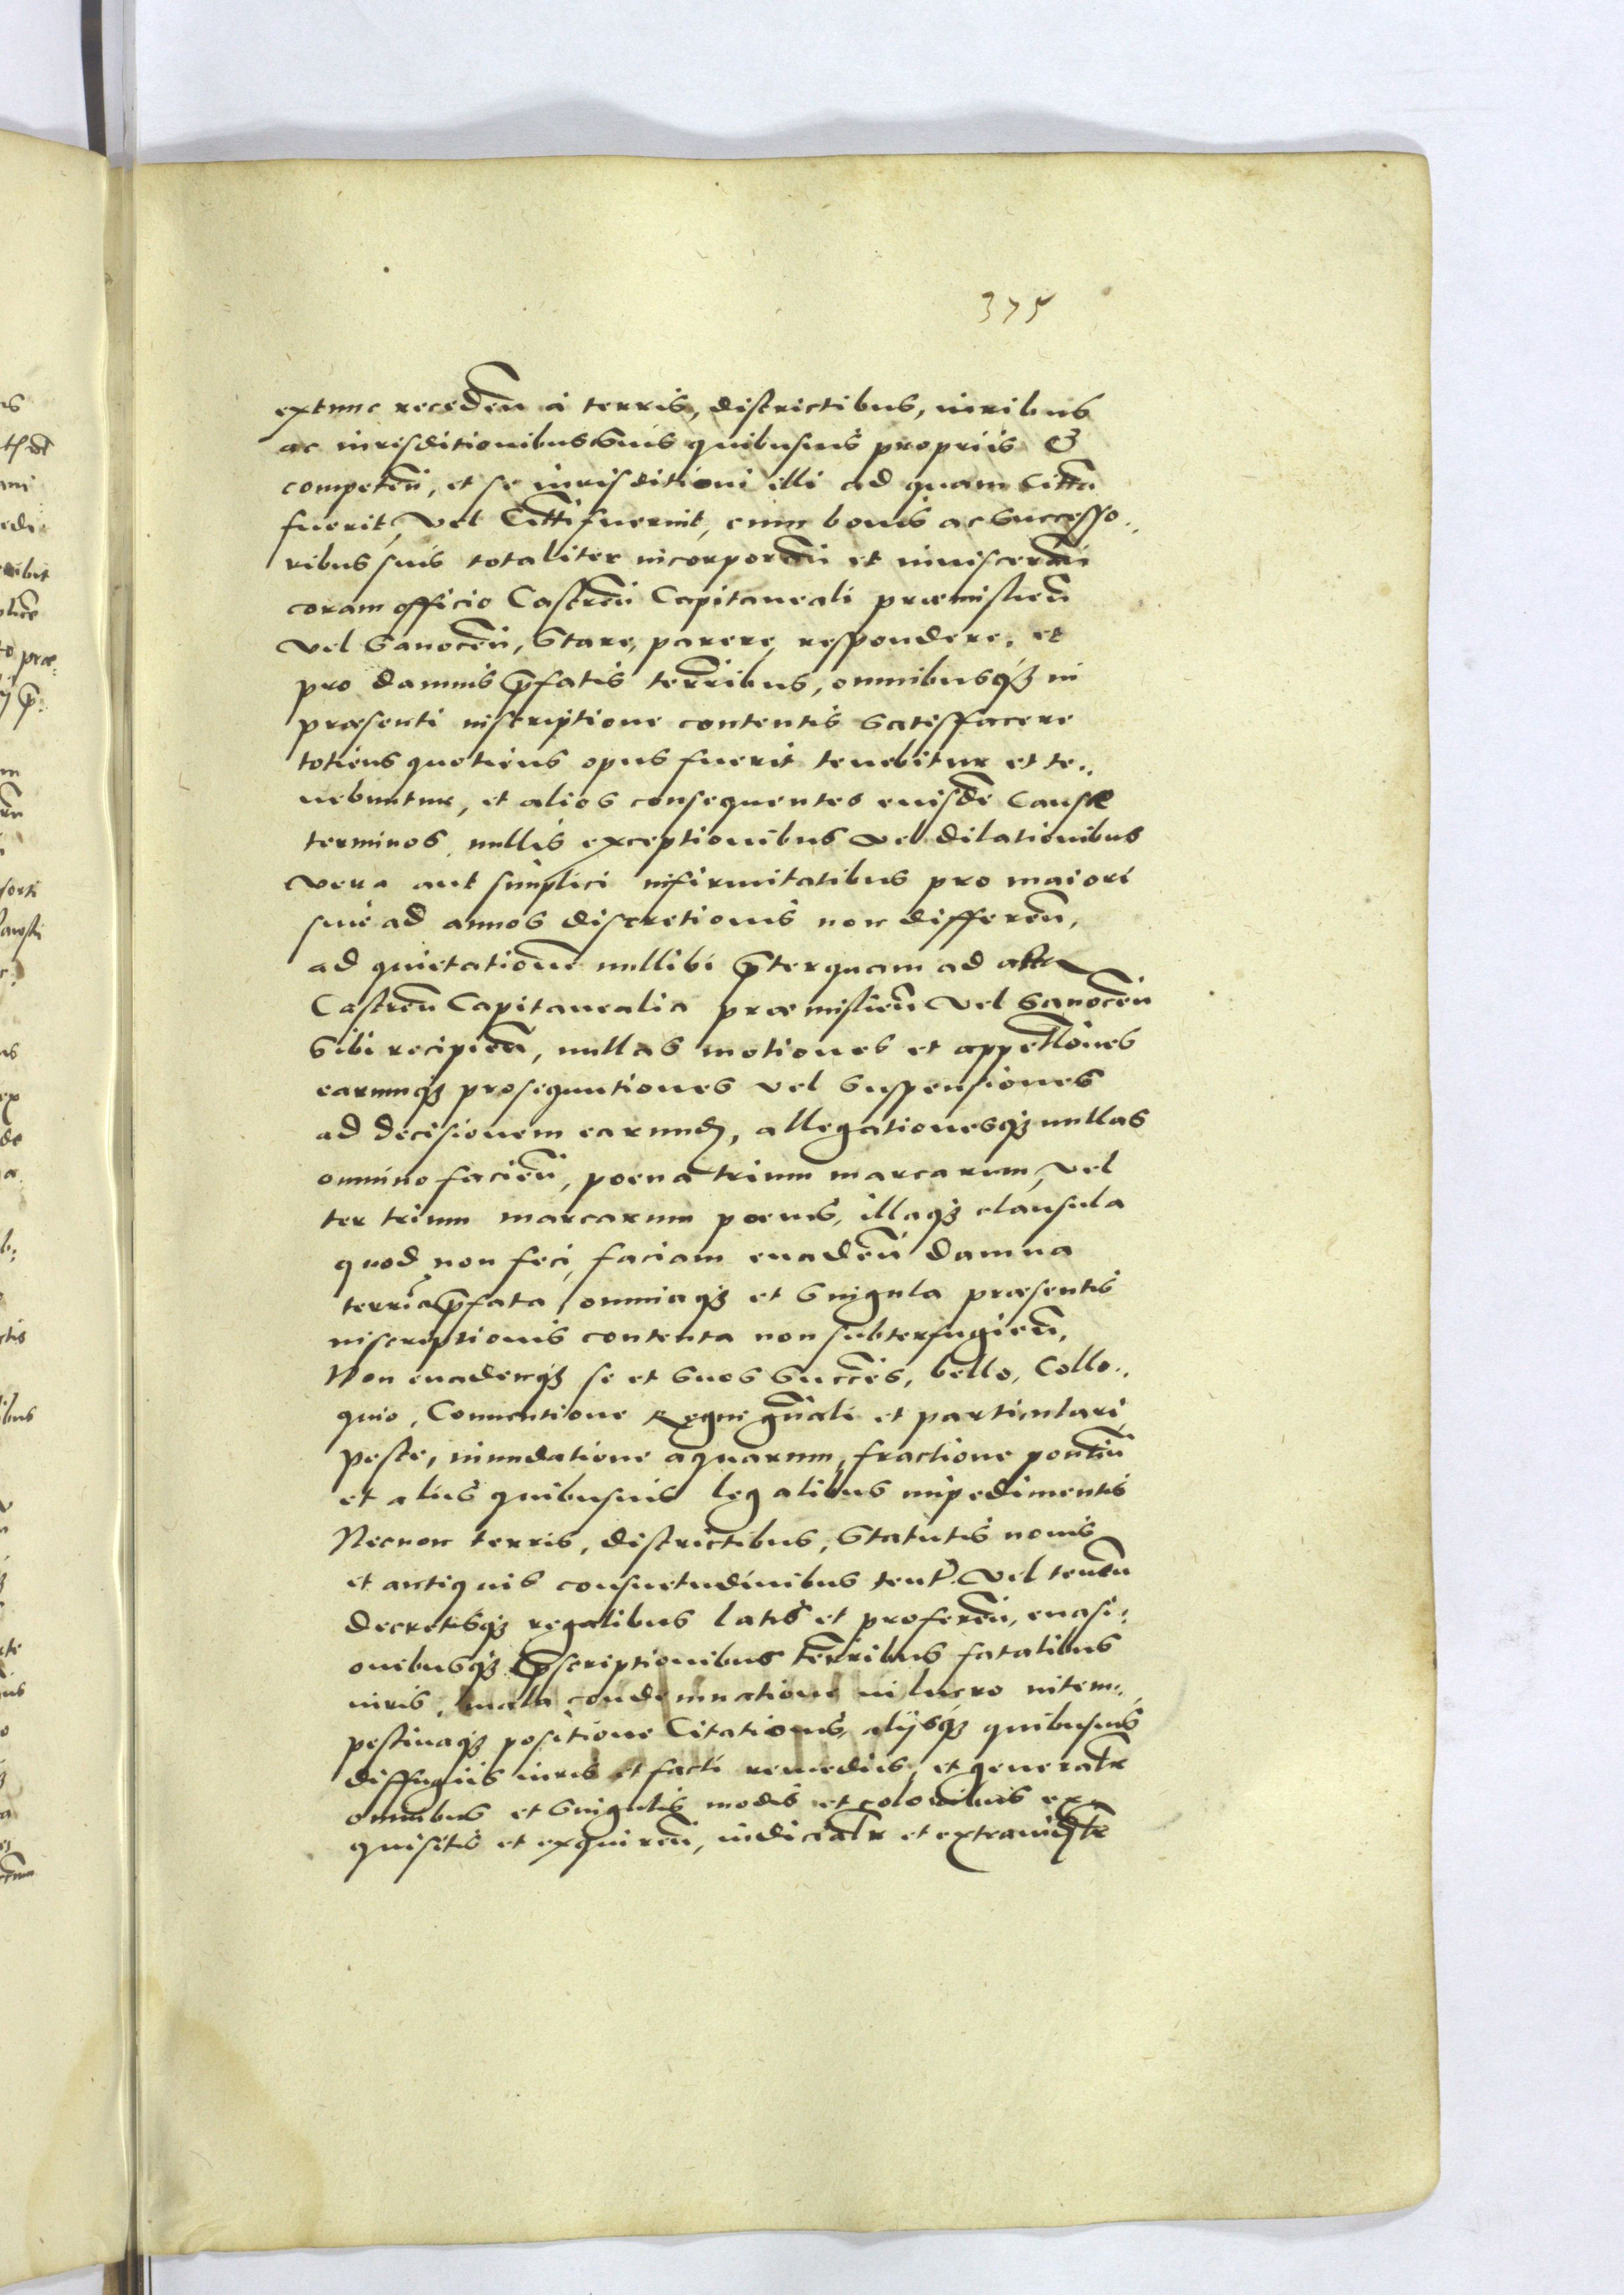 375
extunc recedeñ a terris, districtibus, iuribus
ac iurisditionibus suis quibusuis propriis &
competeñ, et se iurisditioni illi ad quam Citta
fuerit, vel Citti fuerint, cum bonis ac successo..
ribus suis totaliter incorporañ et inuisceram̃
coram officio Castreñ Capitaneali præmislieñ
vel Sanoceñ, stare, parere, respondere, et
pro damnis p̃fatis terrībus, omnibusq3 in
præsenti inscriptione contentis satisffacere
totiens quotiens opus fuerit tenebitur et te..
nebuntur, et alios consequentes eiusdē Causæ
terminos, nullis exceptionibus vel dilationibus
vera aut simplici infirmitatibus pro maiori
siue ad annos discretionis non differeñ,
ad quietationē nullibi p̃terquam ad acta
Castreñ Capitanealia præmislieñ vel Sanoceñ
sibi recipieñ, nullas motiones et appellōnes
earumq3 prosequutiones vel suspensiones
ad decisionem earund, allegationesq3 nullas
omnino facieñ, poena trium marcarum, vel
ter trium marcarum poenis, illaq3 clausula
quod non feci, faciam euadeñ damna
terrīa p̃fata, omniaq3 et singula præsentis
inscriptionis contenta non subterfugieñ,
Non euadenq3 se et suos succēs, bello, Collo..
quio, Conuentione Regni gñali et particulari
peste, inundatione aquarum, fractione pontiũ
et aliis quibusuis legalibus impedimentis
Necnon terris, districtibus, statutis nouis
et antiquis consuetudinibus tent. vel teneñ
decretisq3 regalibus latis et profereñ, euasi:
onibusq3 p̃scriptionibus terrībus fatalibus
iuris, mala condemnatione in lucro intem..
pestiuaq3 positione Citationis, alijsq3 quibusuis
diffugiis iuris et facti remediis, et generalr
omnibus et singulis modis et coloribus ex..
quisitis et exquireñ, iudicialr et extraiudlr